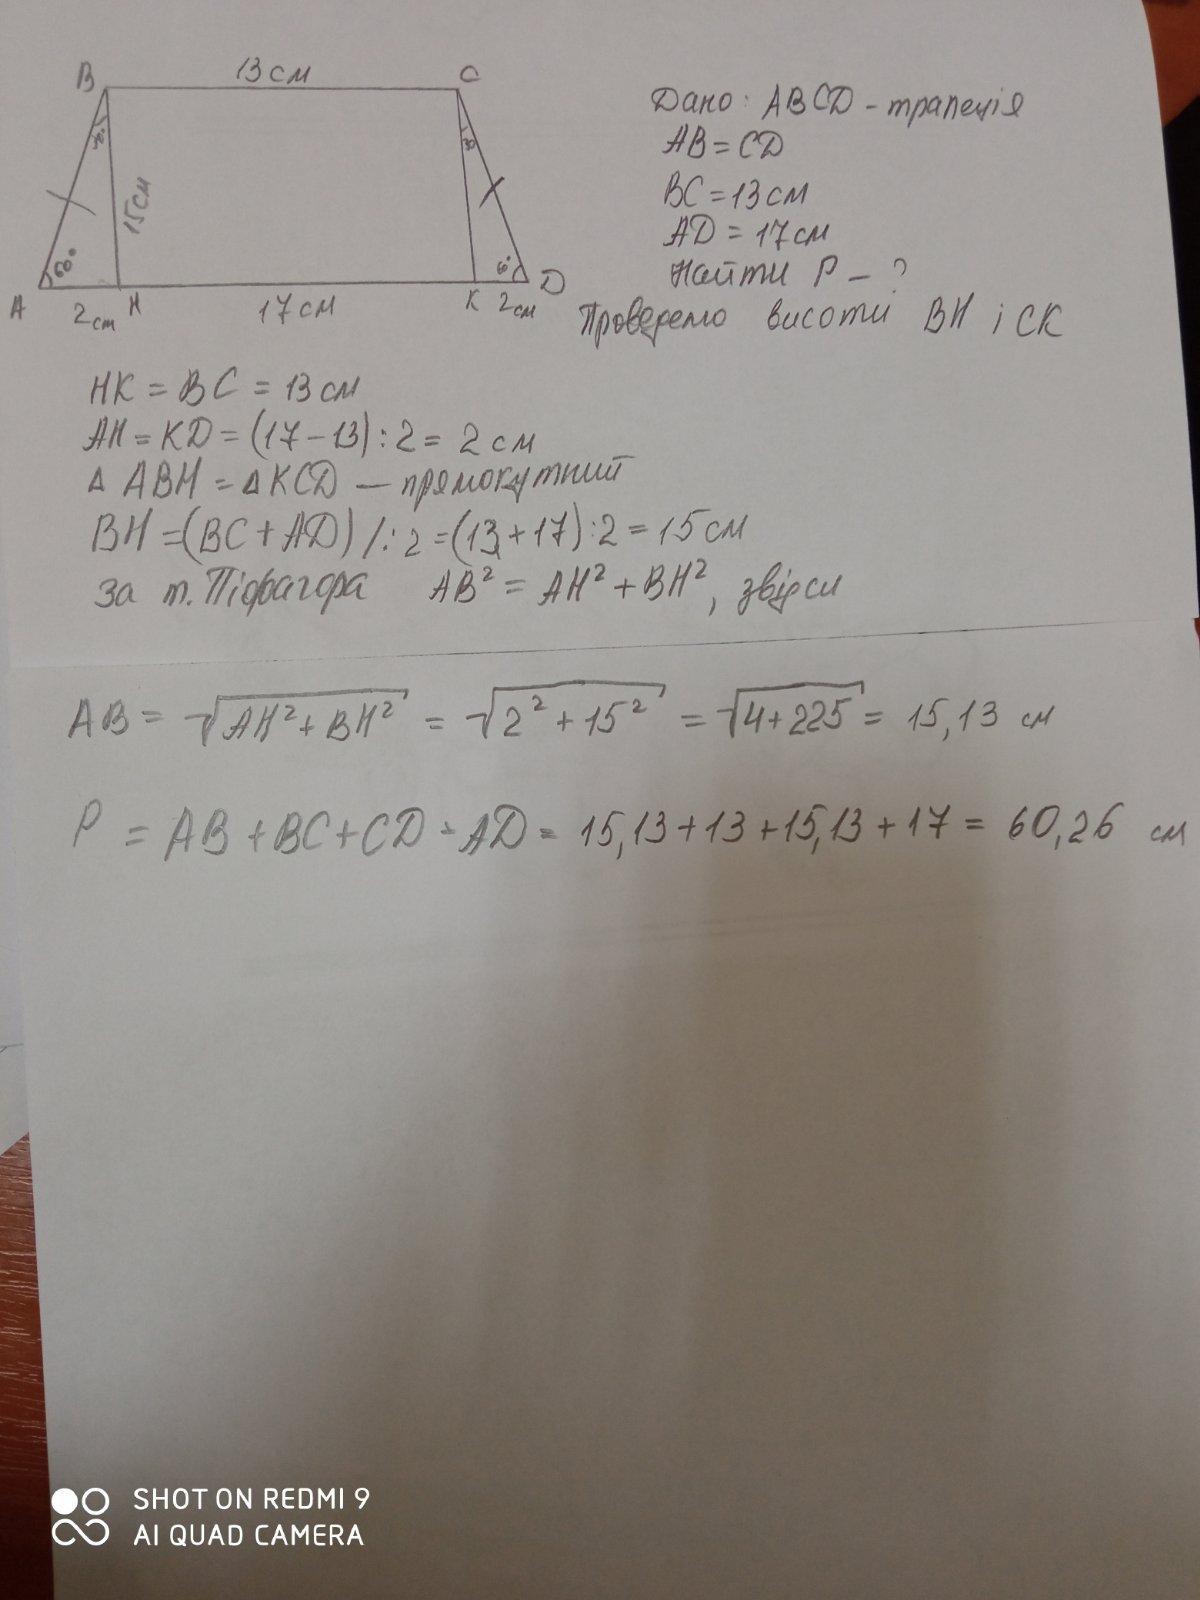 B 13 см C
30°
30
15см
60°
60°
A 2 cm H 17 см K 2см D
Дано: ABCD - трапеція
AB = CD
BC = 13 см
AD = 17 см
Найти P - ?
Проведемо висоти BH і CK
HK = BC = 13 см
AH = KD = (17 - 13) : 2 = 2 см
Δ ABH = Δ KCD — прямокутний
BH = (BC + AD) /: 2 = (13 + 17) : 2 = 15 см
за т. Піфагора AB² = AH² + BH², звідси
AB = √AH² + BH² = √2² + 15² = √4 + 225 = 15,13 см
P = AB + BC + CD + AD = 15,13 + 13 + 15,13 + 17 = 60,26 см
SHOT ON REDMI 9
AI QUAD CAMERA